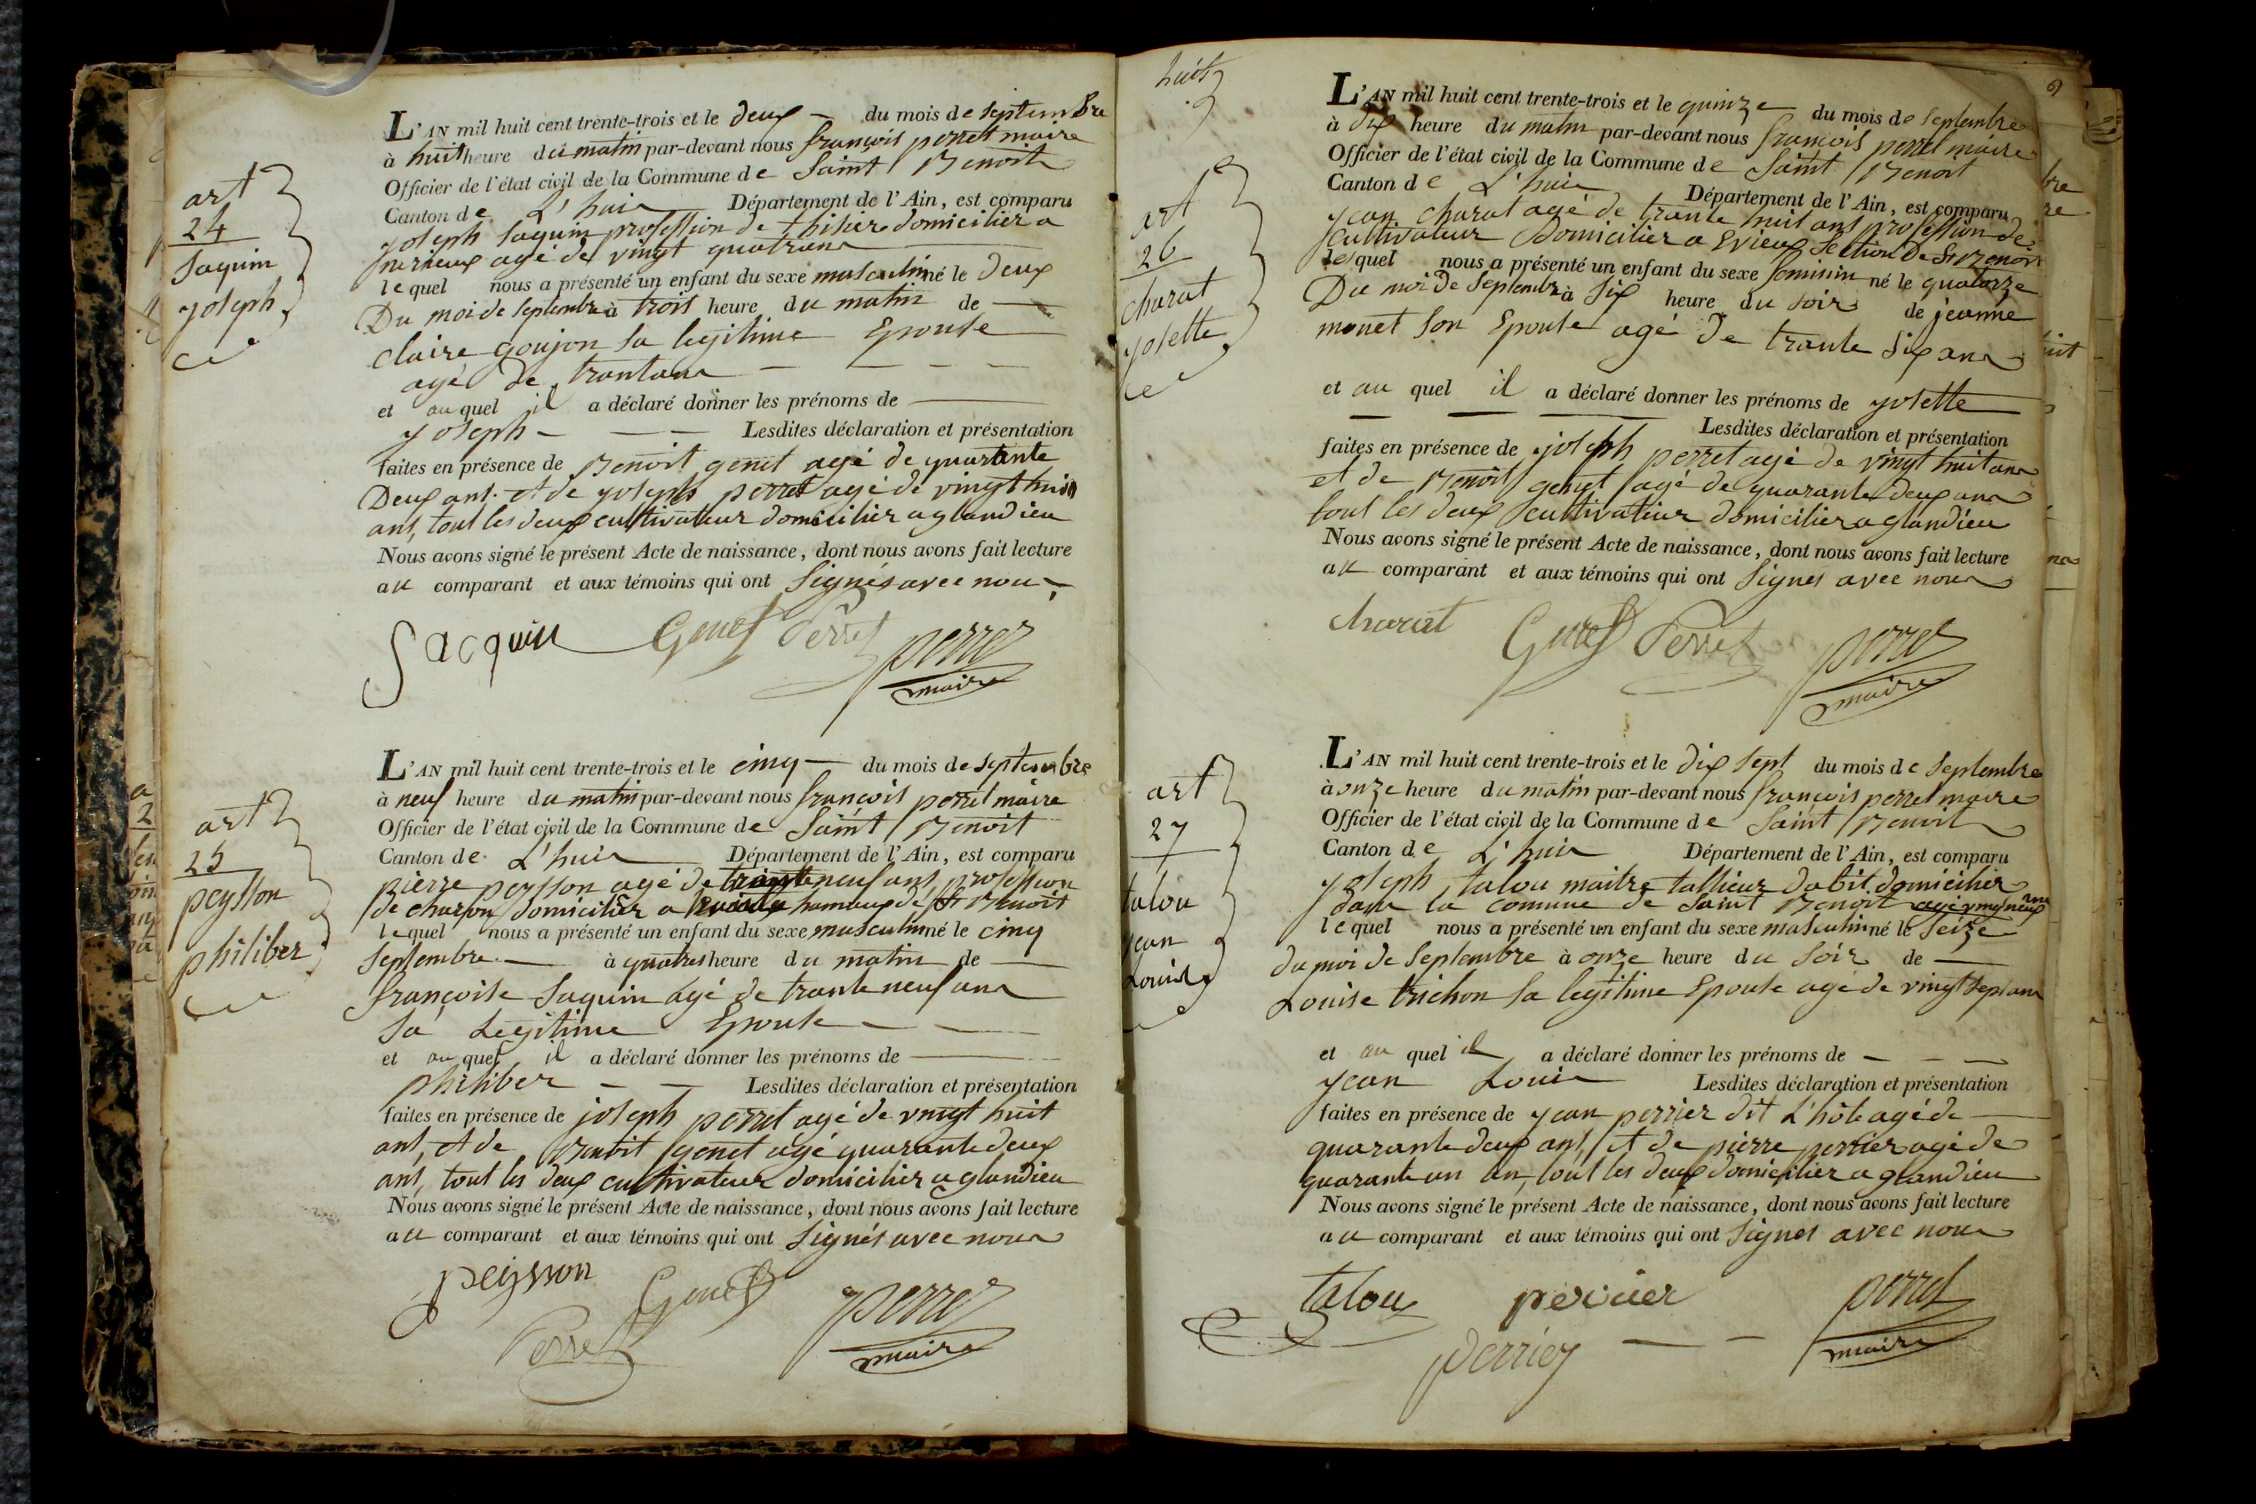 art
24
Saquin
yoseph
L'AN mil huit cent trente-trois et le deux du mois de septembre
à huit heure du matin par-devant nous françois perret maire
Officier de l'état civil de la Commune de Saint Benoit
Canton de L'huis Département de l'Ain, est comparu
yoseph Saquin profession de thisier domicilier a
agé de vingt quatrans
lequel nous a présenté un enfant du sexe masculin né le Deux
Du moi de septembre à trois heure du matin de
claire goujon sa legitime Epouse
agé de trantans
et au quel il a déclaré donner les prénoms de
yoseph Lesdites déclaration et présentation
faites en présence de Benoit genet agé de quarante
Deux ans. et de yoseph perret agé de vingt huit
ans, tout les deux cultivateur domicilier a glandieu
Nous avons signé le présent Acte de naissance, dont nous avons fait lecture
au comparant et aux témoins qui ont Signés avec nous
Sacquin Genet Perret perret
maire
art
25
peysson
philiber
L'AN mil huit cent trente-trois et le cinq du mois de septembre
à neuf heure du matin par-devant nous françois perret maire
Officier de l'état civil de la Commune de Saint Benoit
Canton de L'huis Département de l'Ain, est comparu
pierre peysson agé de trante neuf ans, profession
de charon domicilier a hameux de St Benoit
lequel nous a présenté un enfant du sexe masculin né le cinq
Septembre à quatres heure du matin de
françoise Saquin agé de trante neuf ans
sa Legitime Epouse
et au quel il a déclaré donner les prénoms de
philiber Lesdites déclaration et présentation
faites en présence de joseph perret agé de vingt huit
ans, et de Benoit genet agé quarante deux
ans, tout les deux cultivateur domicilier a glandieu
Nous avons signé le présent Acte de naissance, dont nous avons fait lecture
au comparant et aux témoins qui ont Signés avec nous
peysson Genet perret
Perret maire
huit
9
art
26
charat
yosette
L'AN mil huit cent trente-trois et le quinze du mois de septembre
à Dix heure du matin par-devant nous françois perret maire
Officier de l'état civil de la Commune de Saint Benoit
Canton de L'huis Département de l'Ain, est comparu
yean charat agé de trante huit ans profession de
cultivateur Domicilier a Evieux Section De St Benoit
lesquel nous a présenté un enfant du sexe feminin né le quatorze
Du moi De Septembre à Six heure du soir de jeanne
monet son Epouse agé de trante six ans
et au quel il a déclaré donner les prénoms de yosette
Lesdites déclaration et présentation
faites en présence de joseph perret agé de vingt huit ans
et de Benoit genet agé de quarante deux ans
tout les deux cultivateur domicilier a glandieu
Nous avons signé le présent Acte de naissance, dont nous avons fait lecture
au comparant et aux témoins qui ont Signés avec nous
charat Genet Perret perret
maire
art
27
talou
yean
Louis
L'AN mil huit cent trente-trois et le dix sept du mois de Septembre
à onze heure du matin par-devant nous françois perret maire
Officier de l'état civil de la Commune de Saint Benoit
Canton de L'huis Département de l'Ain, est comparu
yoseph talou maitre tallieur dabit domicilier
dans la comune de Saint Benoit agé vingneuf ans
lequel nous a présenté un enfant du sexe masculin né le Seize
du moi de Septembre à onze heure du Soir de
Louise trichon sa legitime Epouse agé de vingt sept ans
et au quel il a déclaré donner les prénoms de
yean Louis Lesdites déclaration et présentation
faites en présence de yean perrier dit L'hôte agé de
quarante deux ans, et de pierre perrier agé de
quarante un an, tout les deux domicilier a glandieu
Nous avons signé le présent Acte de naissance, dont nous avons fait lecture
au comparant et aux témoins qui ont Signes avec nous
talou perrier perret
perrier maire